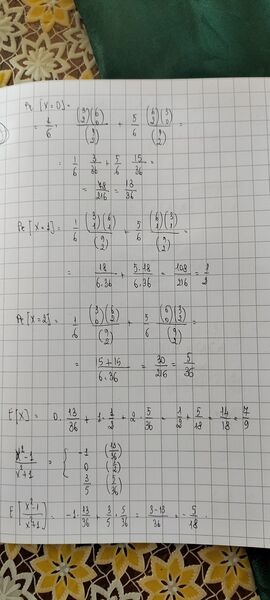 Pr [X=0] =
= 1/6 · (3 2)(6 0) / (9 2) + 5/6 (6 2)(3 0) / (9 2) =
= 1/6 3/36 + 5/6 15/36 =
= 78/216 = 13/36
Pr [X=1] = 1/6 (3 1)(6 1) / (9 2) + 5/6 (6 1)(3 1) / (9 2) =
= 18/6.36 + 5.18/6.36 = 108/216 = 1/2
Pr [X=2] = 1/6 (3 0)(6 2) / (9 2) + 5/6 (6 0)(3 2) / (9 2) =
= 15+15 / 6.36 = 30/216 = 5/36
E[X] = 0. 13/36 + 1. 1/2 + 2. 5/36 = 1/2 + 5/18 = 14/18 = 7/9
x²-1 / x²+1 = { -1 (13/36)
0 (1/2)
3/5 (5/36)
E [x²-1 / x²+1] = -1. 13/36 + 3/5 . 5/36 = 3-13 / 36 = - 5/18 .